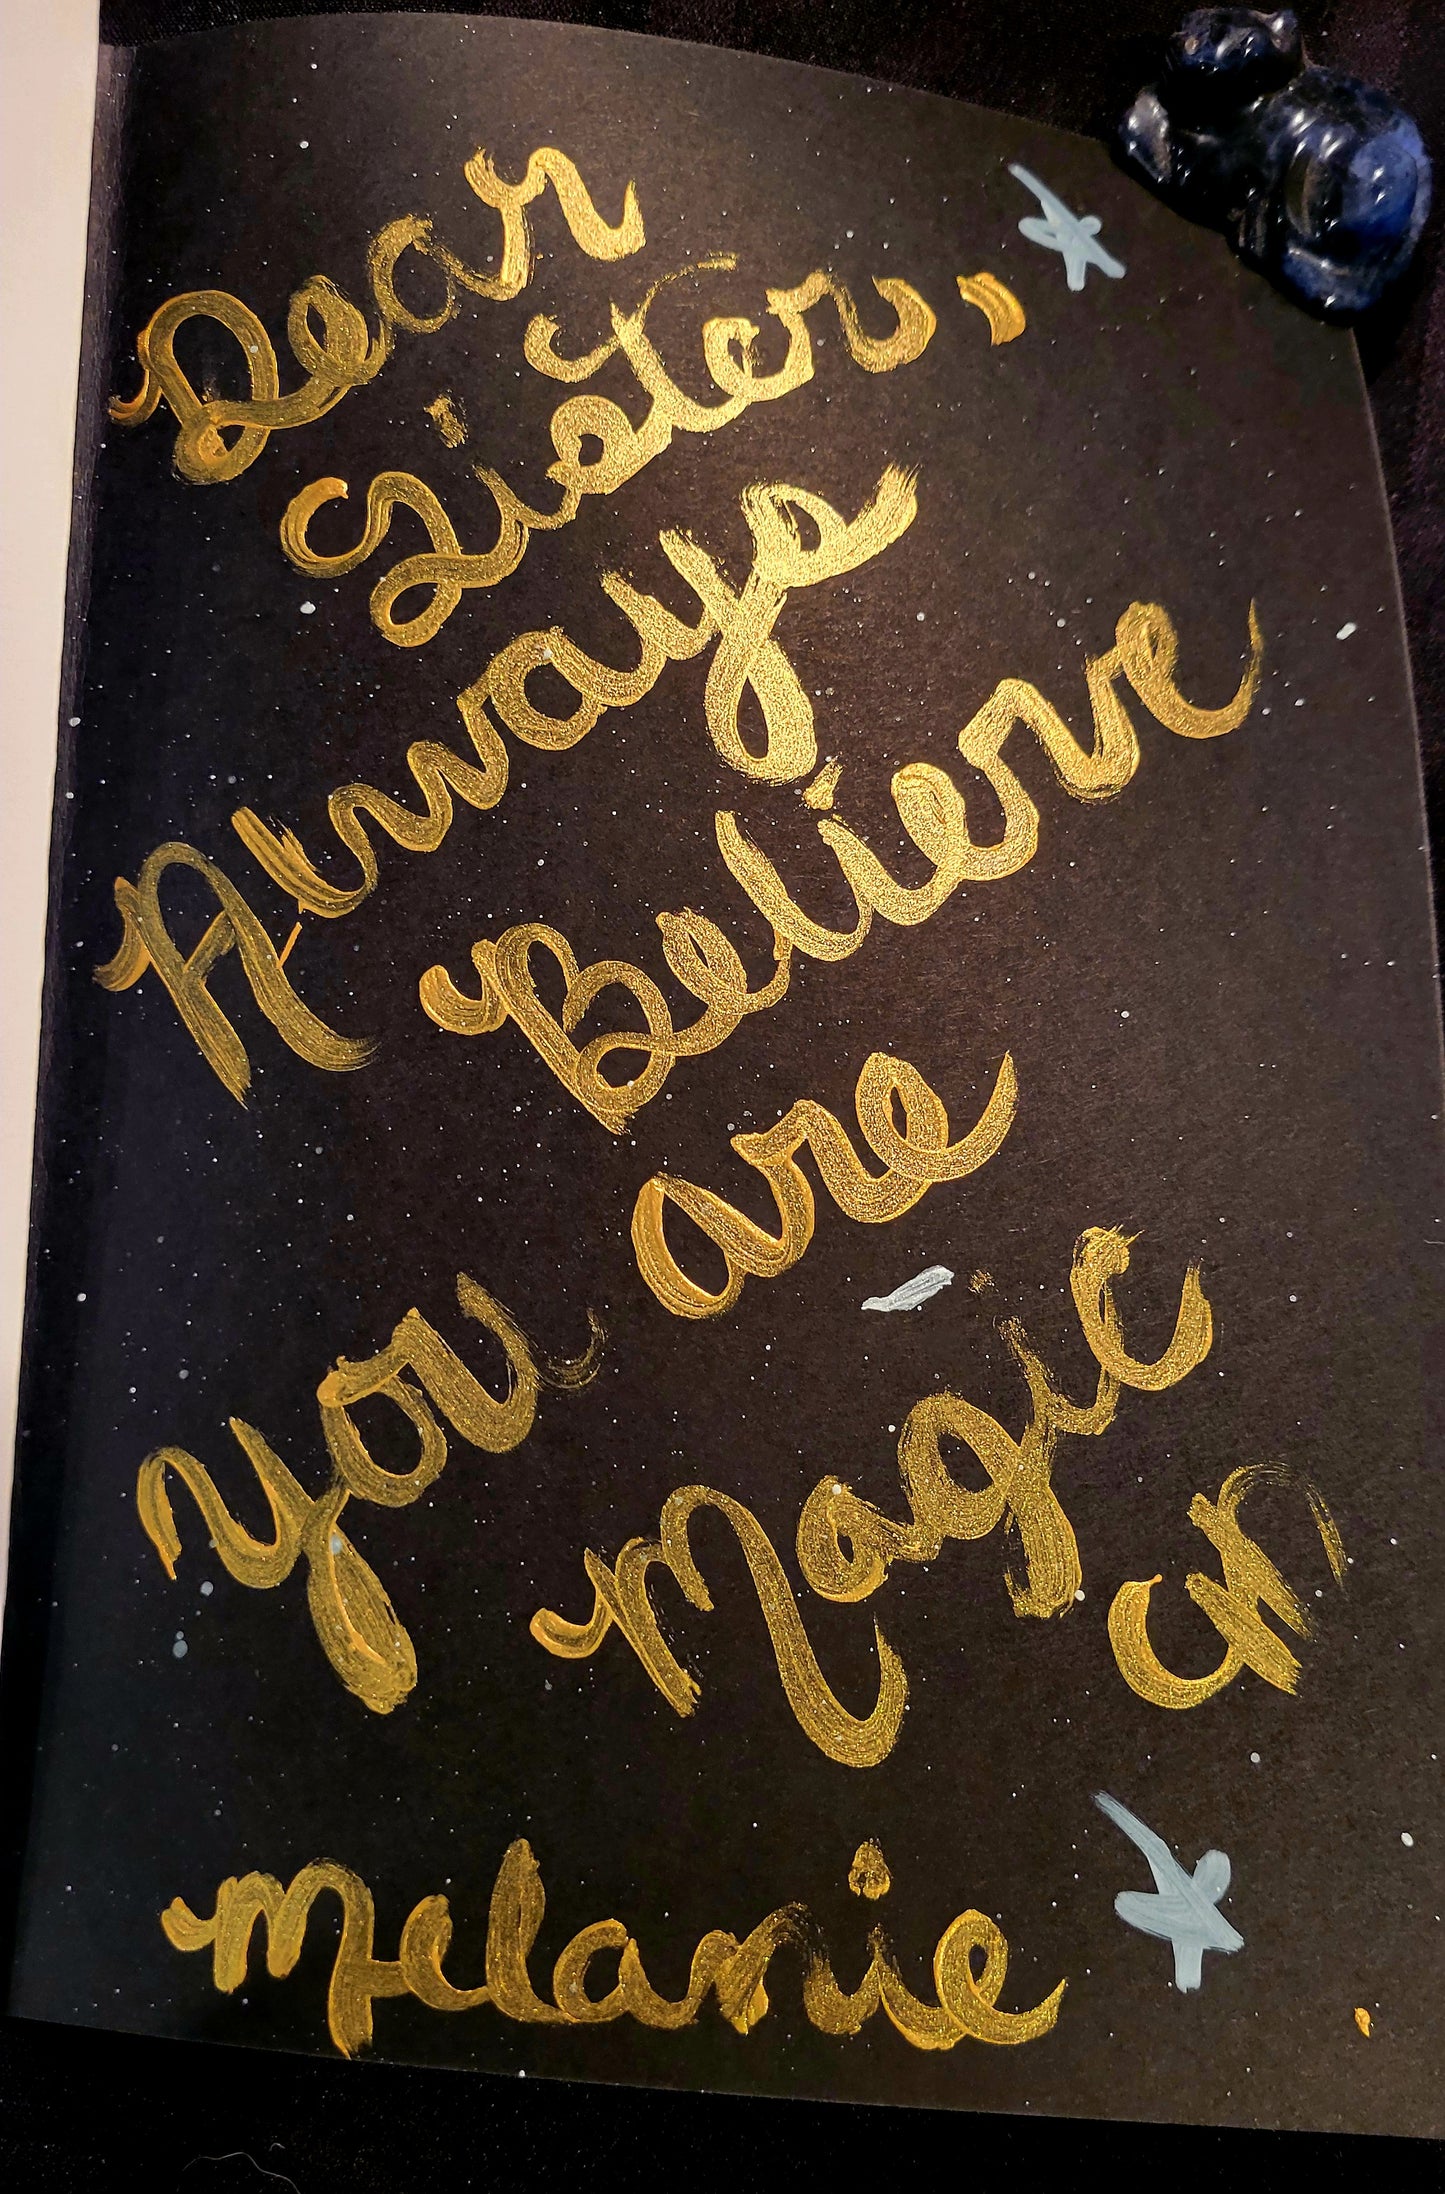 Dear
Sister,
Always
Believe
you are
Magic
Melanie